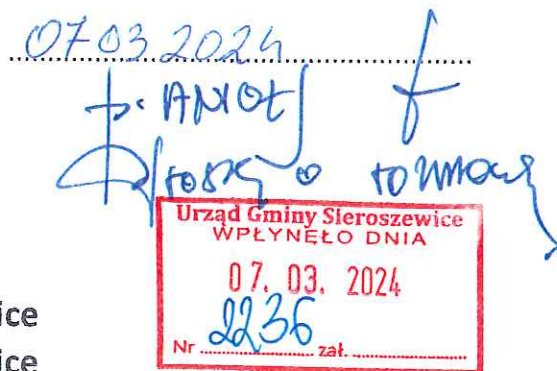 07.03.2024
p. ANIOŁ
Proszę o rozmowę
Urząd Gminy Sieroszewice
WPŁYNĘŁO DNIA
07. 03. 2024
Nr 2236 zał.
ice
ice